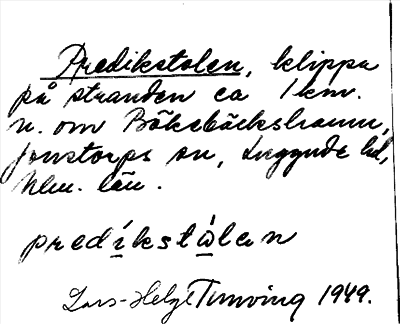 Predikstolen, klippa
på stranden ca 1 km.
n. om Bökebäckshamn,
Jonstorps sn, Luggude hd,
Mlm. län.
predíkstålan
Lars-Helge Tunving 1949.